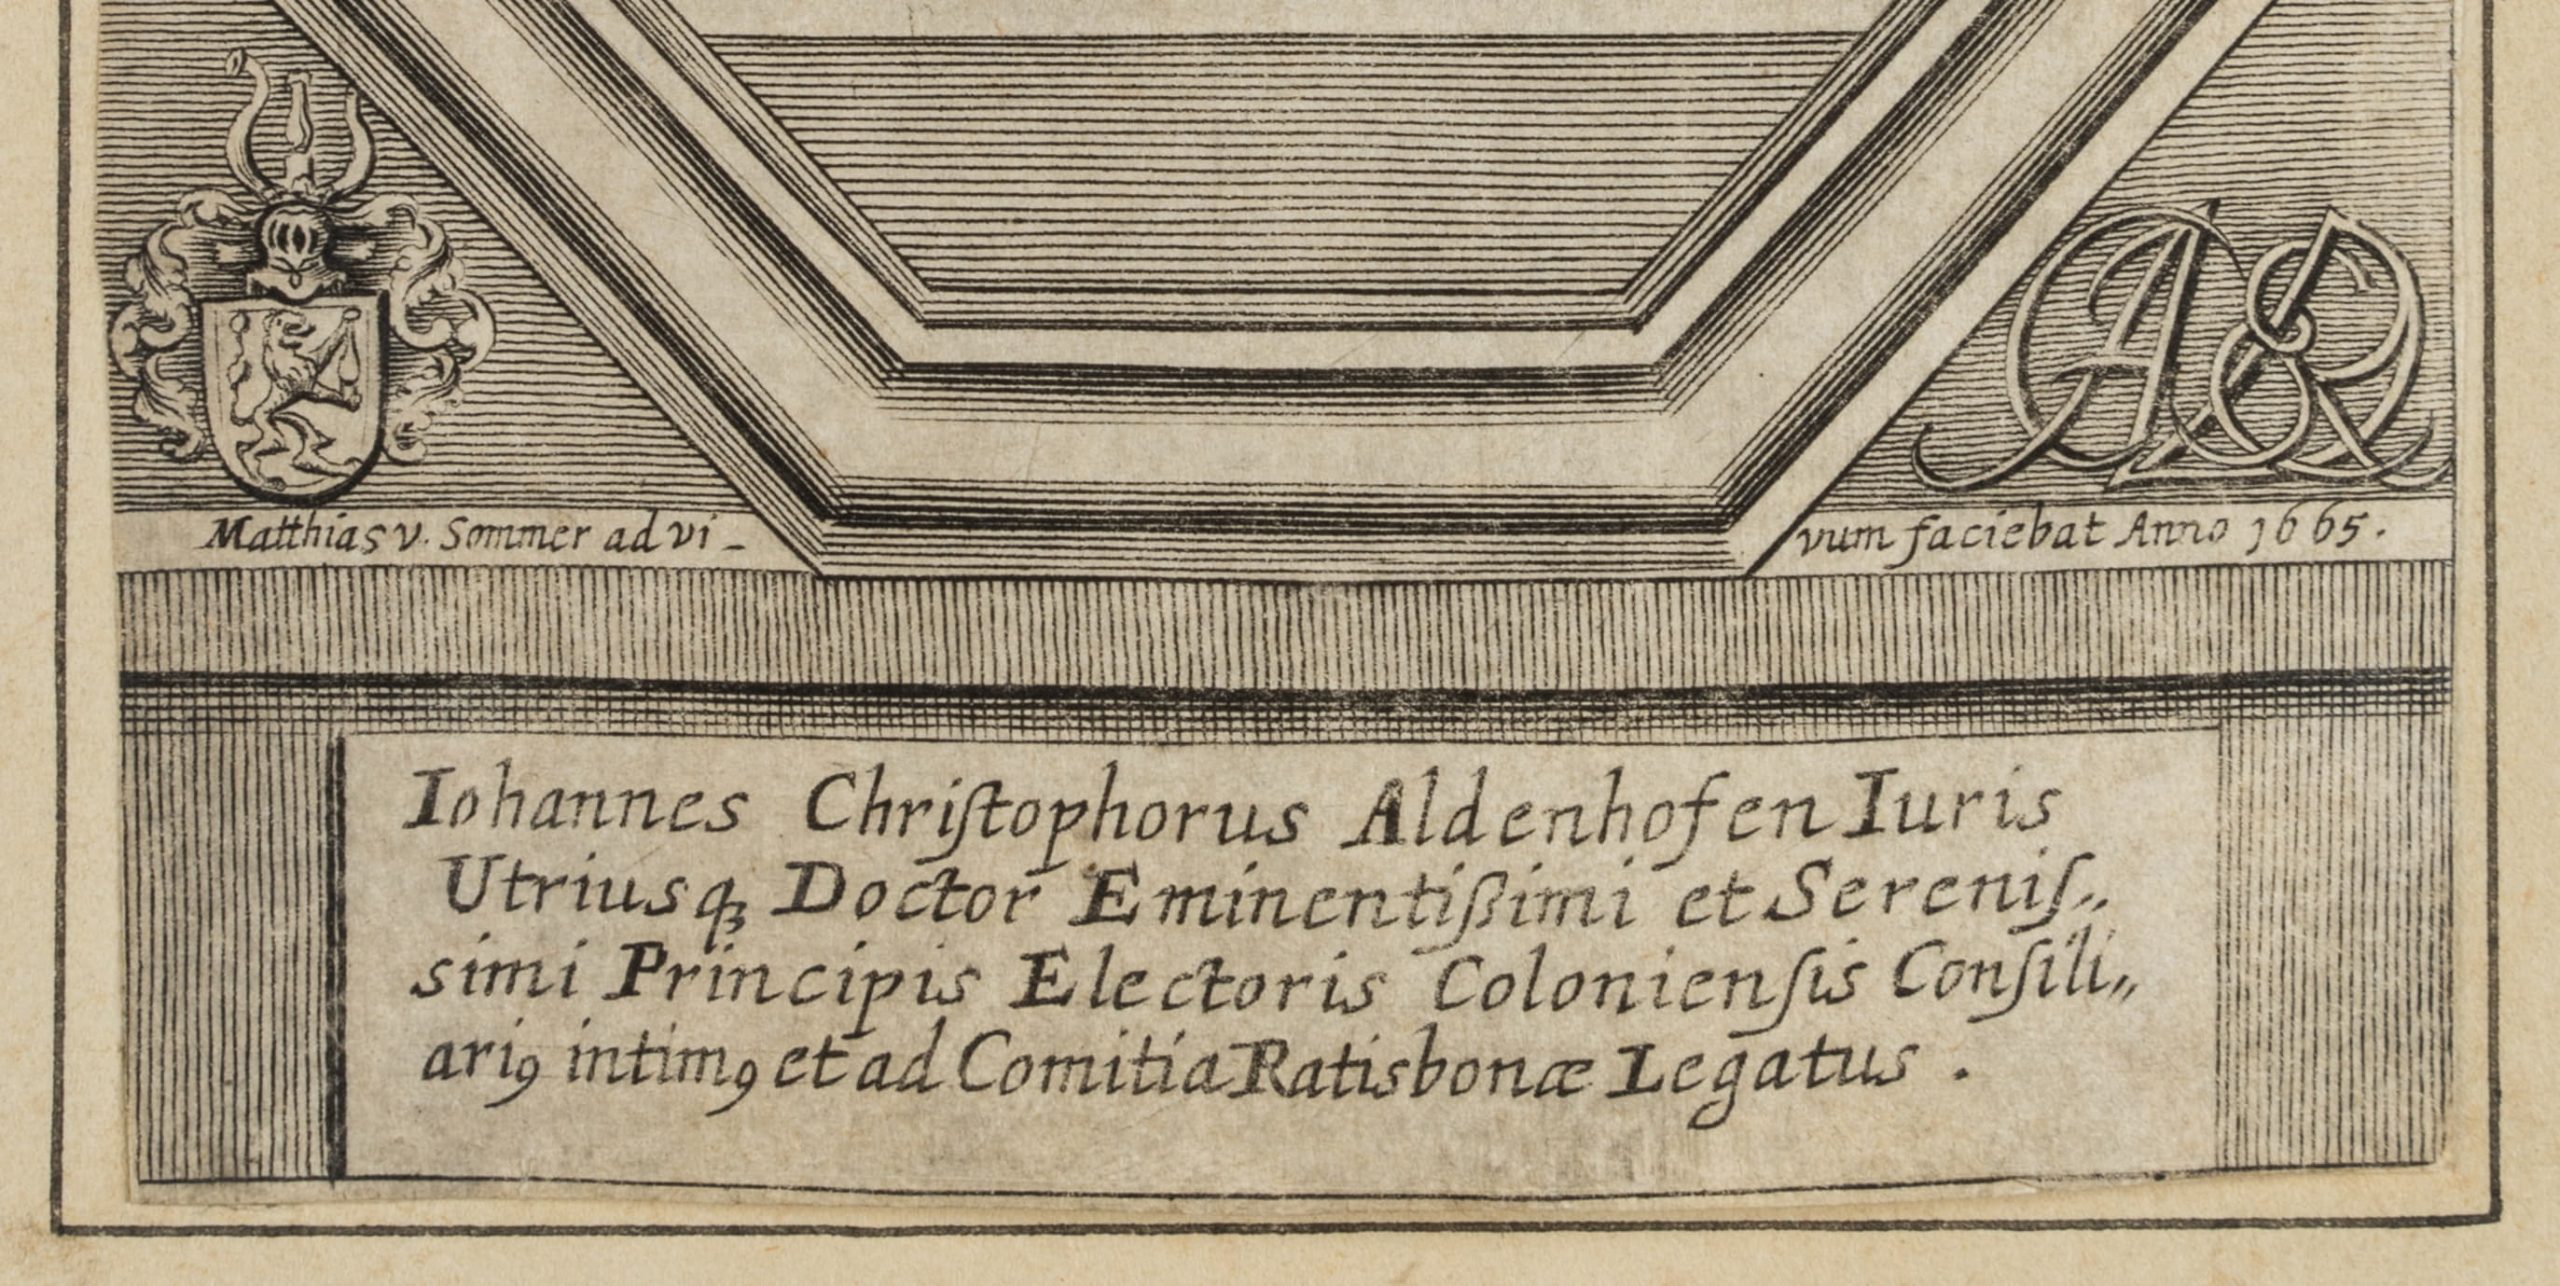 Matthias v. Sommer ad vi-
vum faciebat Anno 1665.
Iohannes Chriſtophorus Aldenhofen Iuris
Utriusqꝫ Doctor Eminentißimi et Sereniſ„
simi Principis Electoris Colonienſis Conſili„
ariꝯ intimꝯ et ad Comitia Ratisbonæ Legatus .